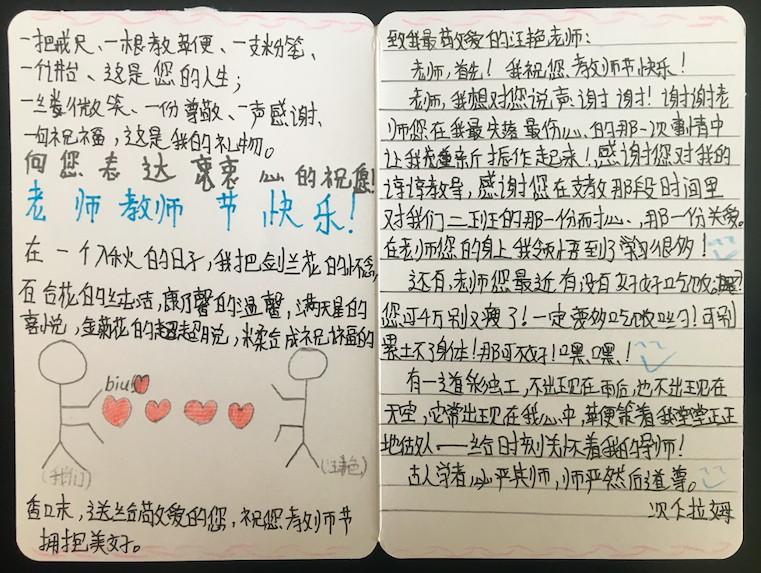 一把戒尺、一根教鞭、一支粉笔、
一个讲台、这是您的人生；
一丝微笑、一份尊敬、一声感谢、
一句祝福，这是我的礼物。
向您表达衷衷心的祝愿！
老师教师节快乐！
在一个入秋的日子，我把剑兰花的怀念，
百合花的纯洁，康乃馨的温馨，满天星的
喜悦，金菊花的超超脱，揉合成祝福的
biu
(我们)
(汪艳)
香囊，送给敬爱的您，祝您教师节
拥抱美好。
致我最敬爱的汪艳老师：
老师，首先！我祝您教师节快乐！
老师，我想对您说声谢谢！谢谢老
师您在我最失落最伤心的那一次事情中
让我重新振作起来！感谢您对我的
谆谆教导，感谢您在支教那段时间里
对我们二班的那一份耐心、那一份关爱。
在老师您的身上我领悟到了学习很多！
还有，老师您最近有没有好好吃饭嘿？
您可千万别又瘦了！一定要多吃饭哟！可别
累坏了身体！那可不好！嘿嘿！
有一道彩虹，不出现在雨后，也不出现在
天空，它常出现在我心中，鞭策着我堂堂正正
地做人——给时刻关怀着我的导师！
古人学者必严其师，师严然后道尊。
次仁拉姆